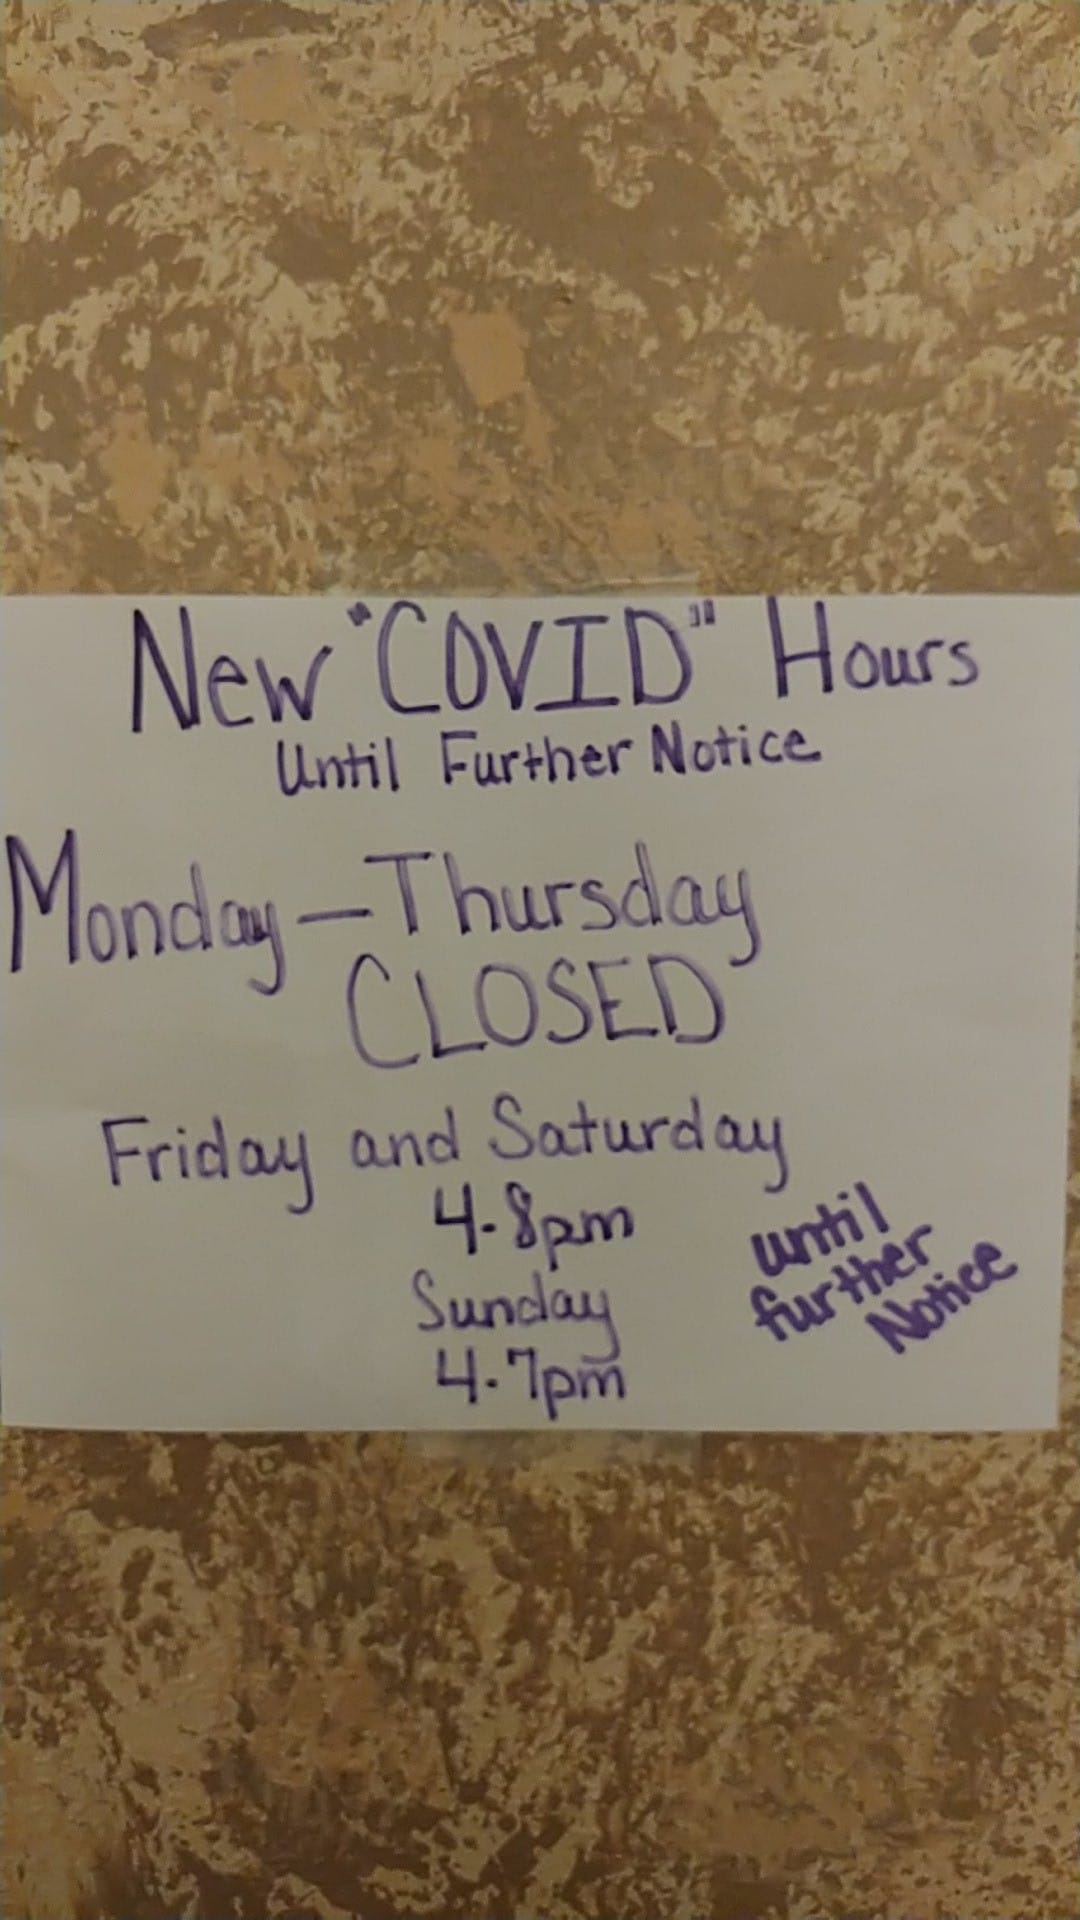 New "COVID" Hours
Until Further Notice
Monday – Thursday
CLOSED
Friday and Saturday
4-8pm
Sunday
4-7pm
until
further
Notice